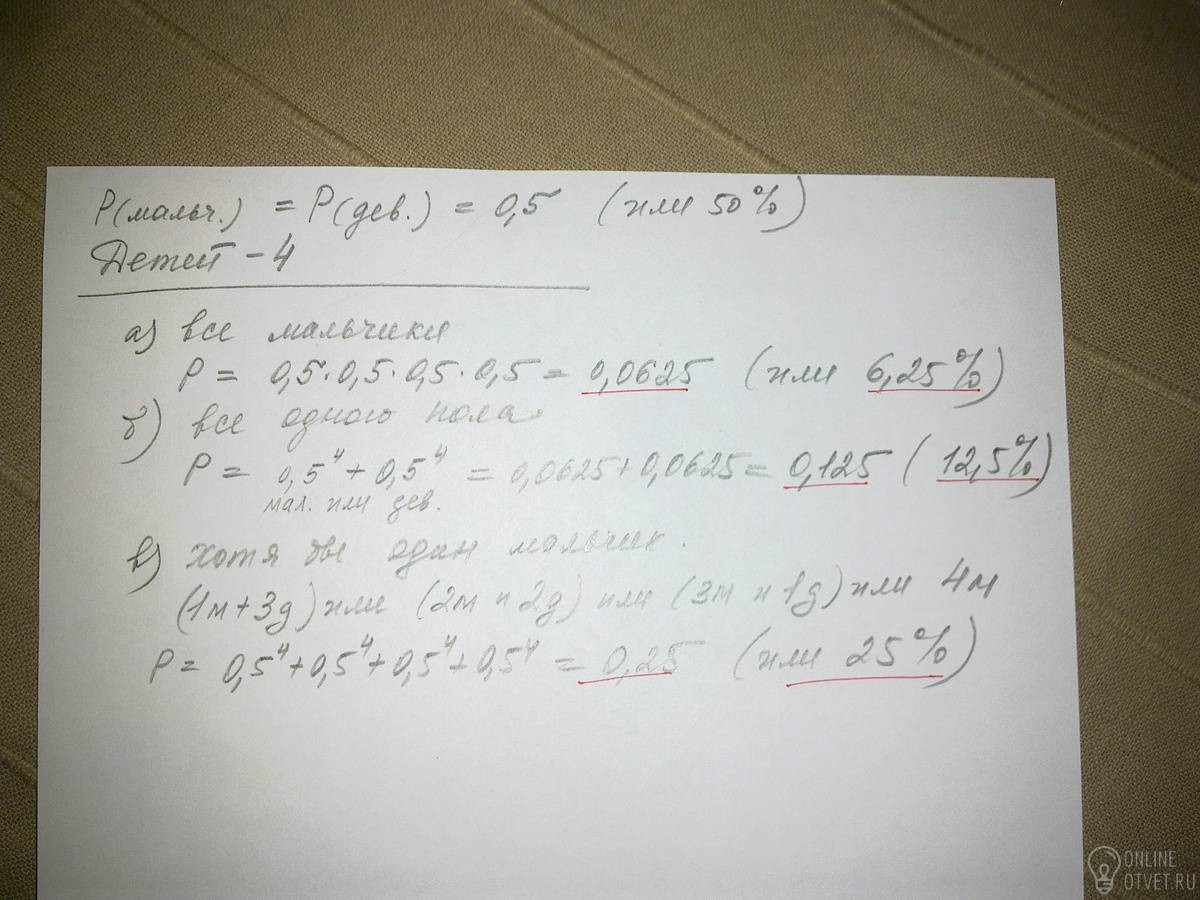 P(мальч.) = P(дев.) = 0,5 (или 50%)
Детей - 4
а) все мальчики
P = 0,5·0,5·0,5·0,5 = 0,0625 (или 6,25%)
б) все одного пола
P = 0,5⁴ + 0,5⁴ = 0,0625 + 0,0625 = 0,125 (12,5%)
мал. или дев.
в) хотя бы один мальчик.
(1м+3д) или (2м и 2д) или (3м и 1д) или 4м
P = 0,5⁴+0,5⁴+0,5⁴+0,5⁴ = 0,25 (или 25%)
ONLINE
OTVET.RU